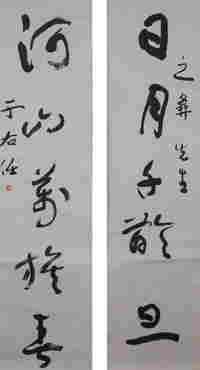 之彝先生
日月千齡旦
河山萬族春
于右任